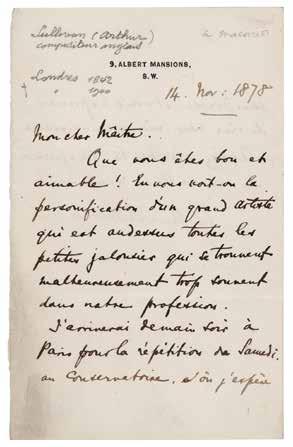 Sullivan (Arthur)
compositeur anglais
Londres 1842
" 1900
9, ALBERT MANSIONS,
S. W.
14. Nov: 1878
Mon cher Maître.
Que vous êtes bon et
aimable! En vous voit-on la
personification d'un grand Artiste
qui est audessus toutes les
petites jalousies qui se trouvent
malheureusement trop souvent
dans notre profession.
J'arriverai demain soir à
Paris pour la répétition de Samedi.
au Conservatoire. d'ôu j'espère